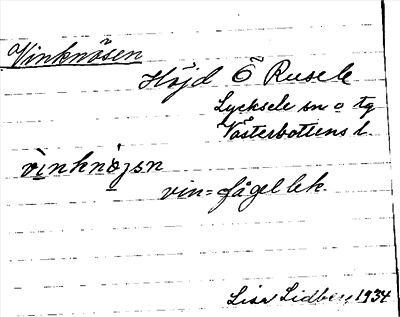 Vinknösen
Höjd Ö Rusele
Lycksele sn o tg
Västerbottens l.
vinknöjsn
vin = fågellek.
Lisa Lidberg 1934